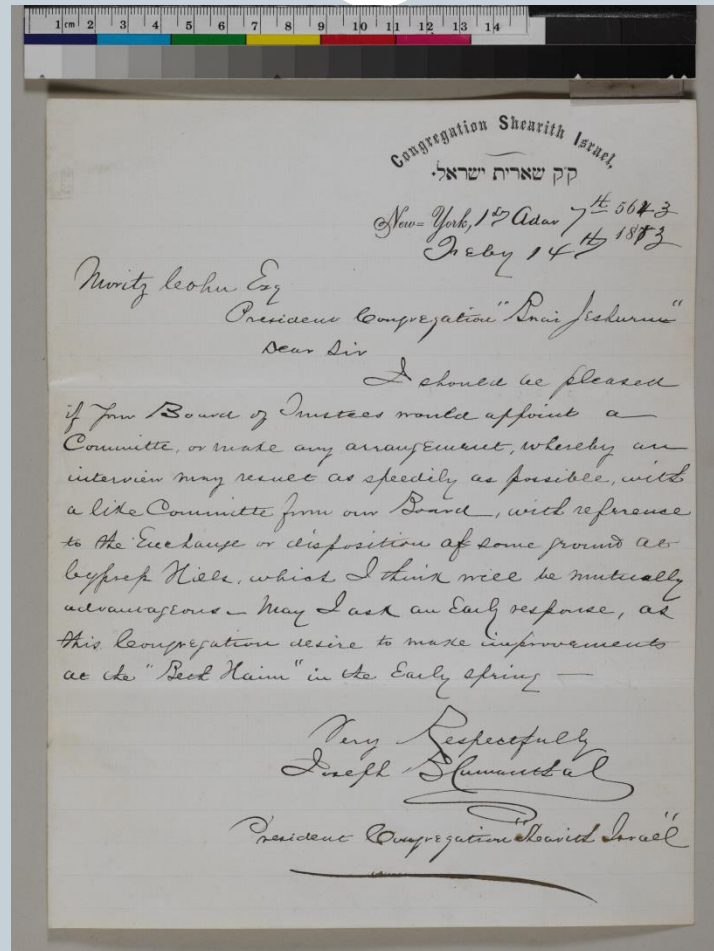 1 cm 2 3 4 5 6 7 8 9 10 11 12 13 14
Congregation Shearith Israel,
ק״ק שארית ישראל.
New=York, 1st Adar 7th 5643
Feby 14th 1883
Moritz Cohn Esq
President Congregation "Bnai Jeshurun"
Dear Sir
I should be pleased
if your Board of Trustees would appoint a
Committe, or make any arrangement, whereby an
interview may result as speedily as possible, with
a like Committe from our Board, with reference
to the Exchange or disposition of some ground at
Cypress Hills, which I think will be mutually
advantageous – May I ask an Early response, as
this Congregation desire to make improvements
at the "Beth Haim" in the Early spring —
Very Respectfully
Joseph Blumenthal
President Congregation "Shearith Israël"